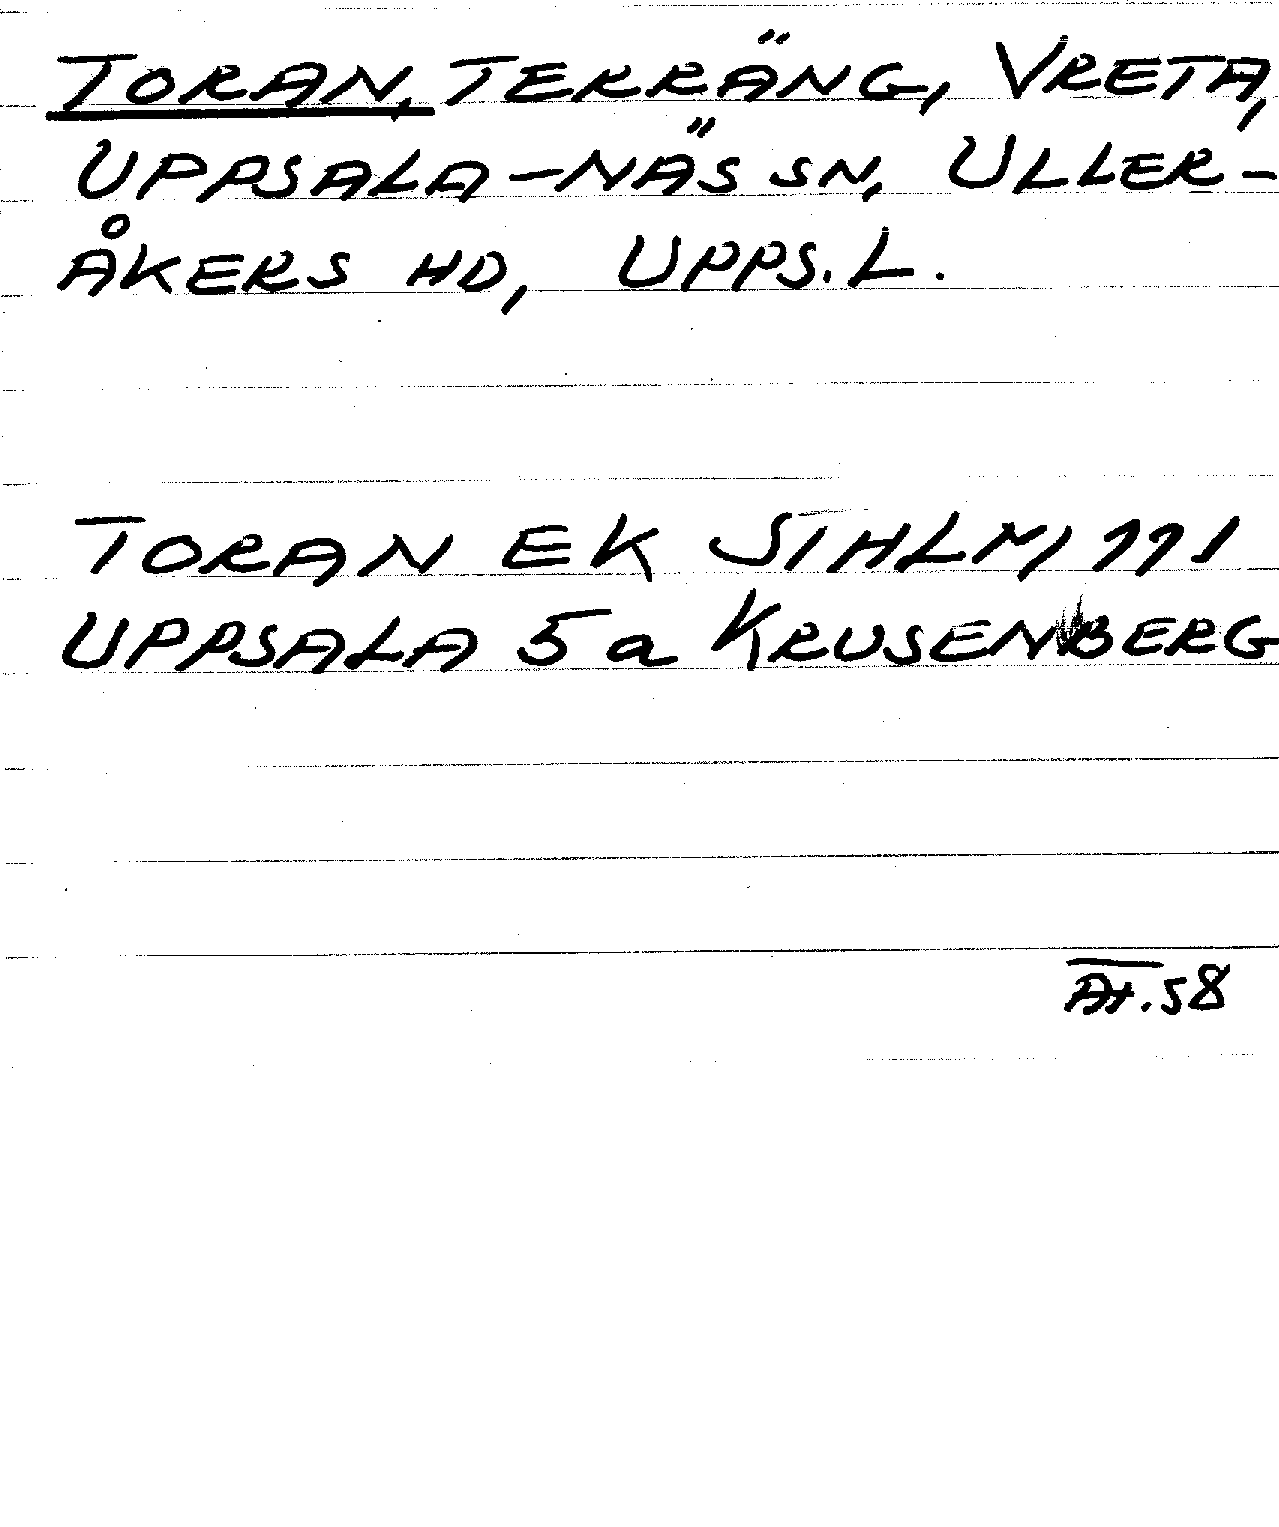 TORAN, TERRÄNG, VRETA,
UPPSALA-NÄS SN, ULLER-
ÅKERS HD, UPPS. L.
TORAN EK STHLM 111
UPPSALA 5a KRUSENBERG
58